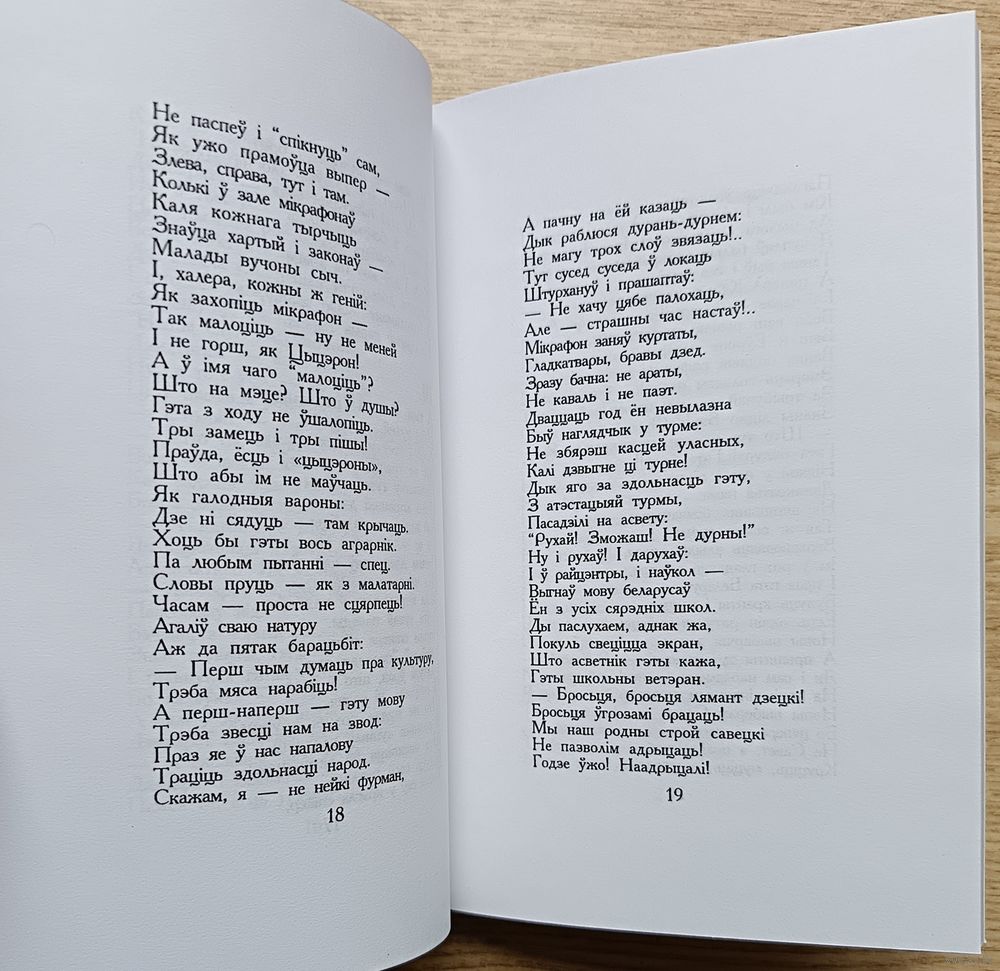 Не паспеў і “спікнуць” сам,
Як ужо прамоўца выпер —
Злева, справа, тут і там.
Колькі ў зале мікрафонаў
Каля кожнага тырчыць
Знаўца хартый і законаў —
Малады вучоны сыч.
І, халера, кожны ж геній:
Як захопіць мікрафон —
Так малоціць — ну не меней
І не горш, як Цыцэрон!
А ў імя чаго “малоціць”?
Што на мэце? Што ў душы?
Гэта з ходу не ўшалопіць.
Тры замець і тры пішы!
Праўда, ёсць і «цыцэроны»,
Што абы ім не маўчаць.
Як галодныя вароны:
Дзе ні сядуць — там крычаць.
Хоць бы гэты вось аграрнік.
Па любым пытанні — спец.
Словы пруць — як з малатарні.
Часам — проста не сцярпець!
Агаліў сваю натуру
Аж да пятак барацьбіт:
— Перш чым думаць пра культуру,
Трэба мяса нарабіць!
А перш-наперш — гэту мову
Трэба звесці нам на звод:
Праз яе ў нас напалову
Траціць здольнасці народ.
Скажам, я — не нейкі фурман,
18
А пачну на ёй казаць —
Дык раблюся дурань-дурнем:
Не магу трох слоў звязаць!..
Тут сусед суседа ў локаць
Штурхануў і прашаптаў:
— Не хачу цябе палохаць,
Але — страшны час настаў!..
Мікрафон заняў куртаты,
Гладкатвары, бравы дзед.
Зразу бачна: не араты,
Не каваль і не паэт.
Дваццаць год ён невылазна
Быў наглядчык у турме:
Не збярэш касцей уласных,
Калі дзвыгне ці турне!
Дык яго за здольнасць гэту,
З атэстацыяй турмы,
Пасадзілі на асвету:
“Рухай! Зможаш! Не дурны!”
Ну і рухаў! І дарухаў:
І ў райцэнтры, і наўкол —
Выгнаў мову беларусаў
Ён з усіх сярэдніх школ.
Ды паслухаем, аднак жа,
Покуль свеціцца экран,
Што асветнік гэты кажа,
Гэты школьны ветэран.
— Бросьця, бросьця лямант дзецкі!
Бросьця ўгрозамі брацаць!
Мы наш родны строй савецкі
Не пазволім адрыцаць!
Годзе ўжо! Наадрыцалі!
19